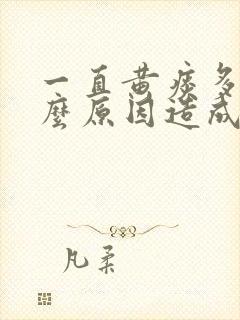 一直黄痰多
麽原因造成
凡柔